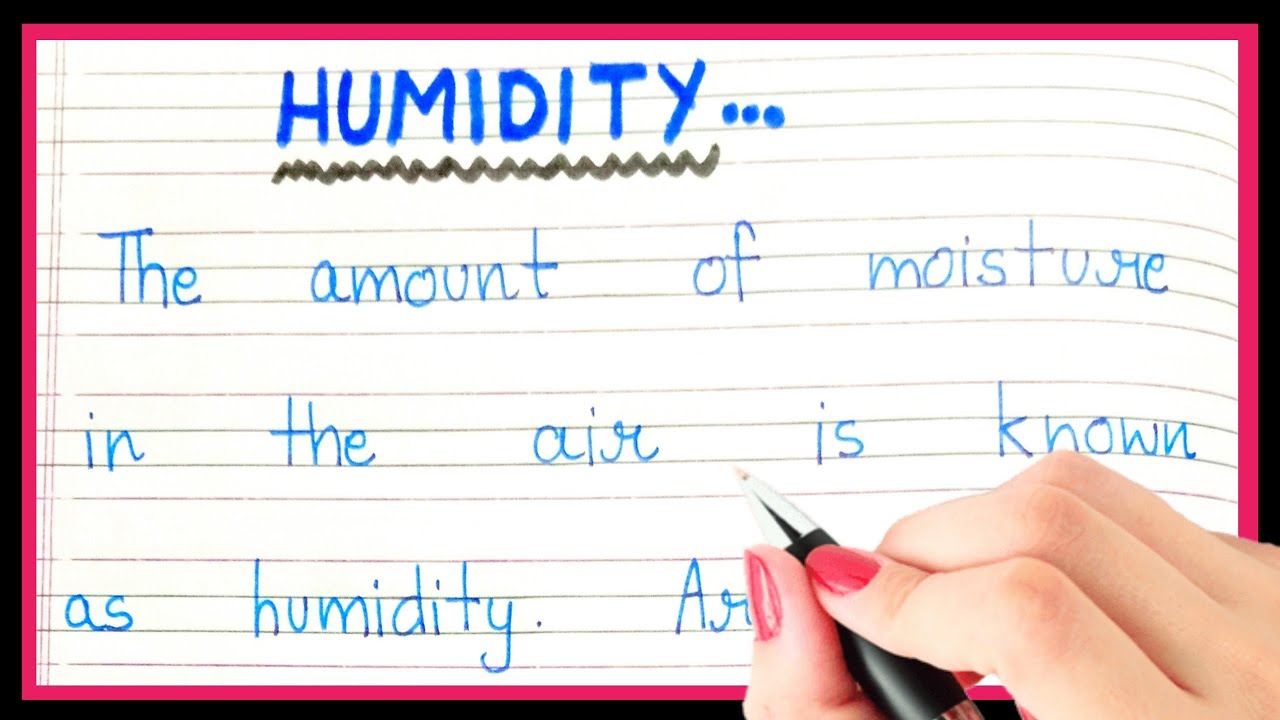 HUMIDITY...
The amount of moisture
in the air is known
as humidity.